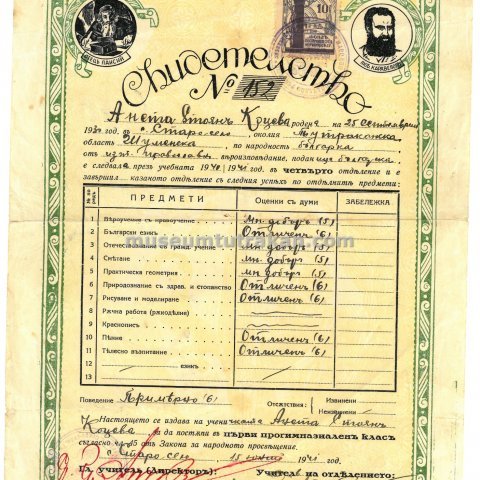 ОТЕЦЪ ПАИСИЙ
ЛЮБ. КАРАВЕЛОВЪ
10
Свидетелство
№ 152
Анета Стоянъ Коцева родена на 25 септемврий
193 год. в с. Старо-село, околия Тутраканска
област Шуменска, по народность българка
от изт. православно вѣроизповѣдание,
е следвала през учебната 1940/1941 год. в четвърто отдѣление и е
завършил казаното отдѣление съ следния успѣх по отдѣлнитѣ предмети:
№ по редъ
ПРЕДМЕТИ
Оценки съ думи
ЗАБЕЛЕЖКА
1 Вѣроучение съ нравоучение Мн. добъръ (5)
2 Български езикъ Отличенъ (6)
3 Отечествознание съ гражд. учение мн. добъръ (5)
4 Смѣтане мн. добъръ (5)
5 Практическа геометрия мн. добъръ (5)
6 Природознание съ здравн. и стопанство Отличенъ (6)
7 Рисуване и моделиране Отличенъ (6)
8 Ржчна работа (ржкодѣлия)
9 Краснопис
10 Пѣние Отличенъ (6)
11 Тѣлесно възпитание Отличенъ (6)
12 езикъ
13
museumtutrakan.com
Поведение Примѣрно (6)
Отсѫтствия: Извинени
Неизвинени
Настоящето се издава на ученичката Анета Стоянъ
Коцева да постѫпи въ първи прогимназиаленъ класъ
съгласно чл. 45 отъ Закона за народното просвѣщение.
с. Старо-село 15 юний 1941 год.
Гл. учитель (Директоръ):
Учитель на отдѣлението: